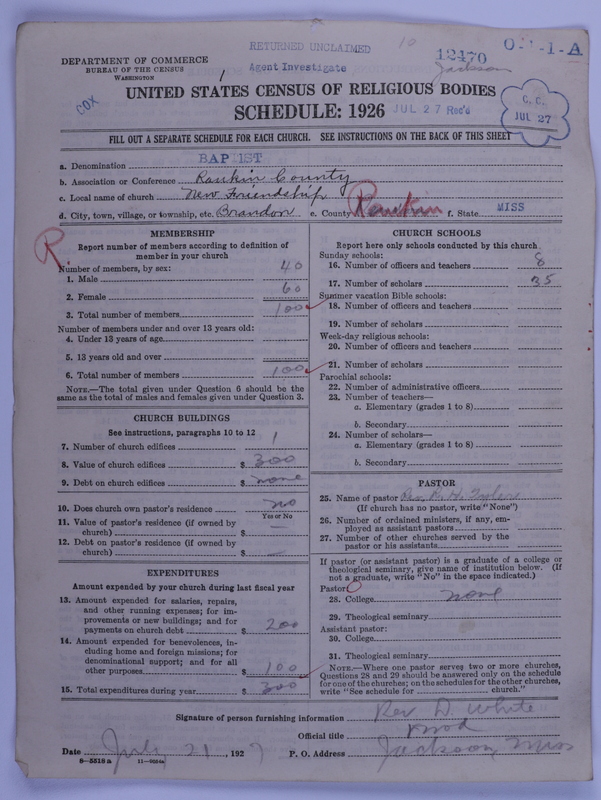 RETURNED UNCLAIMED
10
12470
DEPARTMENT OF COMMERCE
BUREAU OF THE CENSUS
WASHINGTON
Agent Investigate
Jackson
COX
UNITED STATES CENSUS OF RELIGIOUS BODIES
SCHEDULE: 1926
JUL 27 Rec'd
C. C.
JUL 27
FILL OUT A SEPARATE SCHEDULE FOR EACH CHURCH. SEE INSTRUCTIONS ON THE BACK OF THIS SHEET
a. Denomination BAPTIST
b. Association or Conference Rankin County
c. Local name of church New Friendship
d. City, town, village, or township, etc. Brandon e. County Rankin f. State MISS
R.
MEMBERSHIP
Report number of members according to definition of
member in your church
Number of members, by sex:
1. Male 40
2. Female 60
3. Total number of members 100
Number of members under and over 13 years old:
4. Under 13 years of age
5. 13 years old and over
6. Total number of members 100
NOTE.—The total given under Question 6 should be the
same as the total of males and females given under Question 3.
CHURCH BUILDINGS
See instructions, paragraphs 10 to 12
7. Number of church edifices 1
8. Value of church edifices $ 300
9. Debt on church edifices $ none
10. Does church own pastor's residence no
Yes or No
11. Value of pastor's residence (if owned by
church) $ —
12. Debt on pastor's residence (if owned by
church) $ —
EXPENDITURES
Amount expended by your church during last fiscal year
13. Amount expended for salaries, repairs,
and other running expenses; for im-
provements or new buildings; and for
payments on church debt $ 200
14. Amount expended for benevolences, in-
cluding home and foreign missions; for
denominational support; and for all
other purposes $ 100
15. Total expenditures during year $ 300
CHURCH SCHOOLS
Report here only schools conducted by this church
Sunday schools:
16. Number of officers and teachers 8
17. Number of scholars 35
Summer vacation Bible schools:
18. Number of officers and teachers
19. Number of scholars
Week-day religious schools:
20. Number of officers and teachers
21. Number of scholars
Parochial schools:
22. Number of administrative officers
23. Number of teachers—
a. Elementary (grades 1 to 8)
b. Secondary
24. Number of scholars—
a. Elementary (grades 1 to 8)
b. Secondary
PASTOR
25. Name of pastor Rev.
(If church has no pastor, write "None")
26. Number of ordained ministers, if any, em-
ployed as assistant pastors
27. Number of other churches served by the
pastor or his assistants
If pastor (or assistant pastor) is a graduate of a college or
theological seminary, give name of institution below. (If
not a graduate, write "No" in the space indicated.)
Pastor:
28. College none
29. Theological seminary
Assistant pastor:
30. College
31. Theological seminary
NOTE.—Where one pastor serves two or more churches,
Questions 28 and 29 should be answered only on the schedule
for one of the churches; on the schedules for the other churches,
write "See schedule for church."
Signature of person furnishing information Rev D. White
Official title Mod
Date July 21, 1927 P. O. Address Jackson, Miss
8—5518a 11—9054a